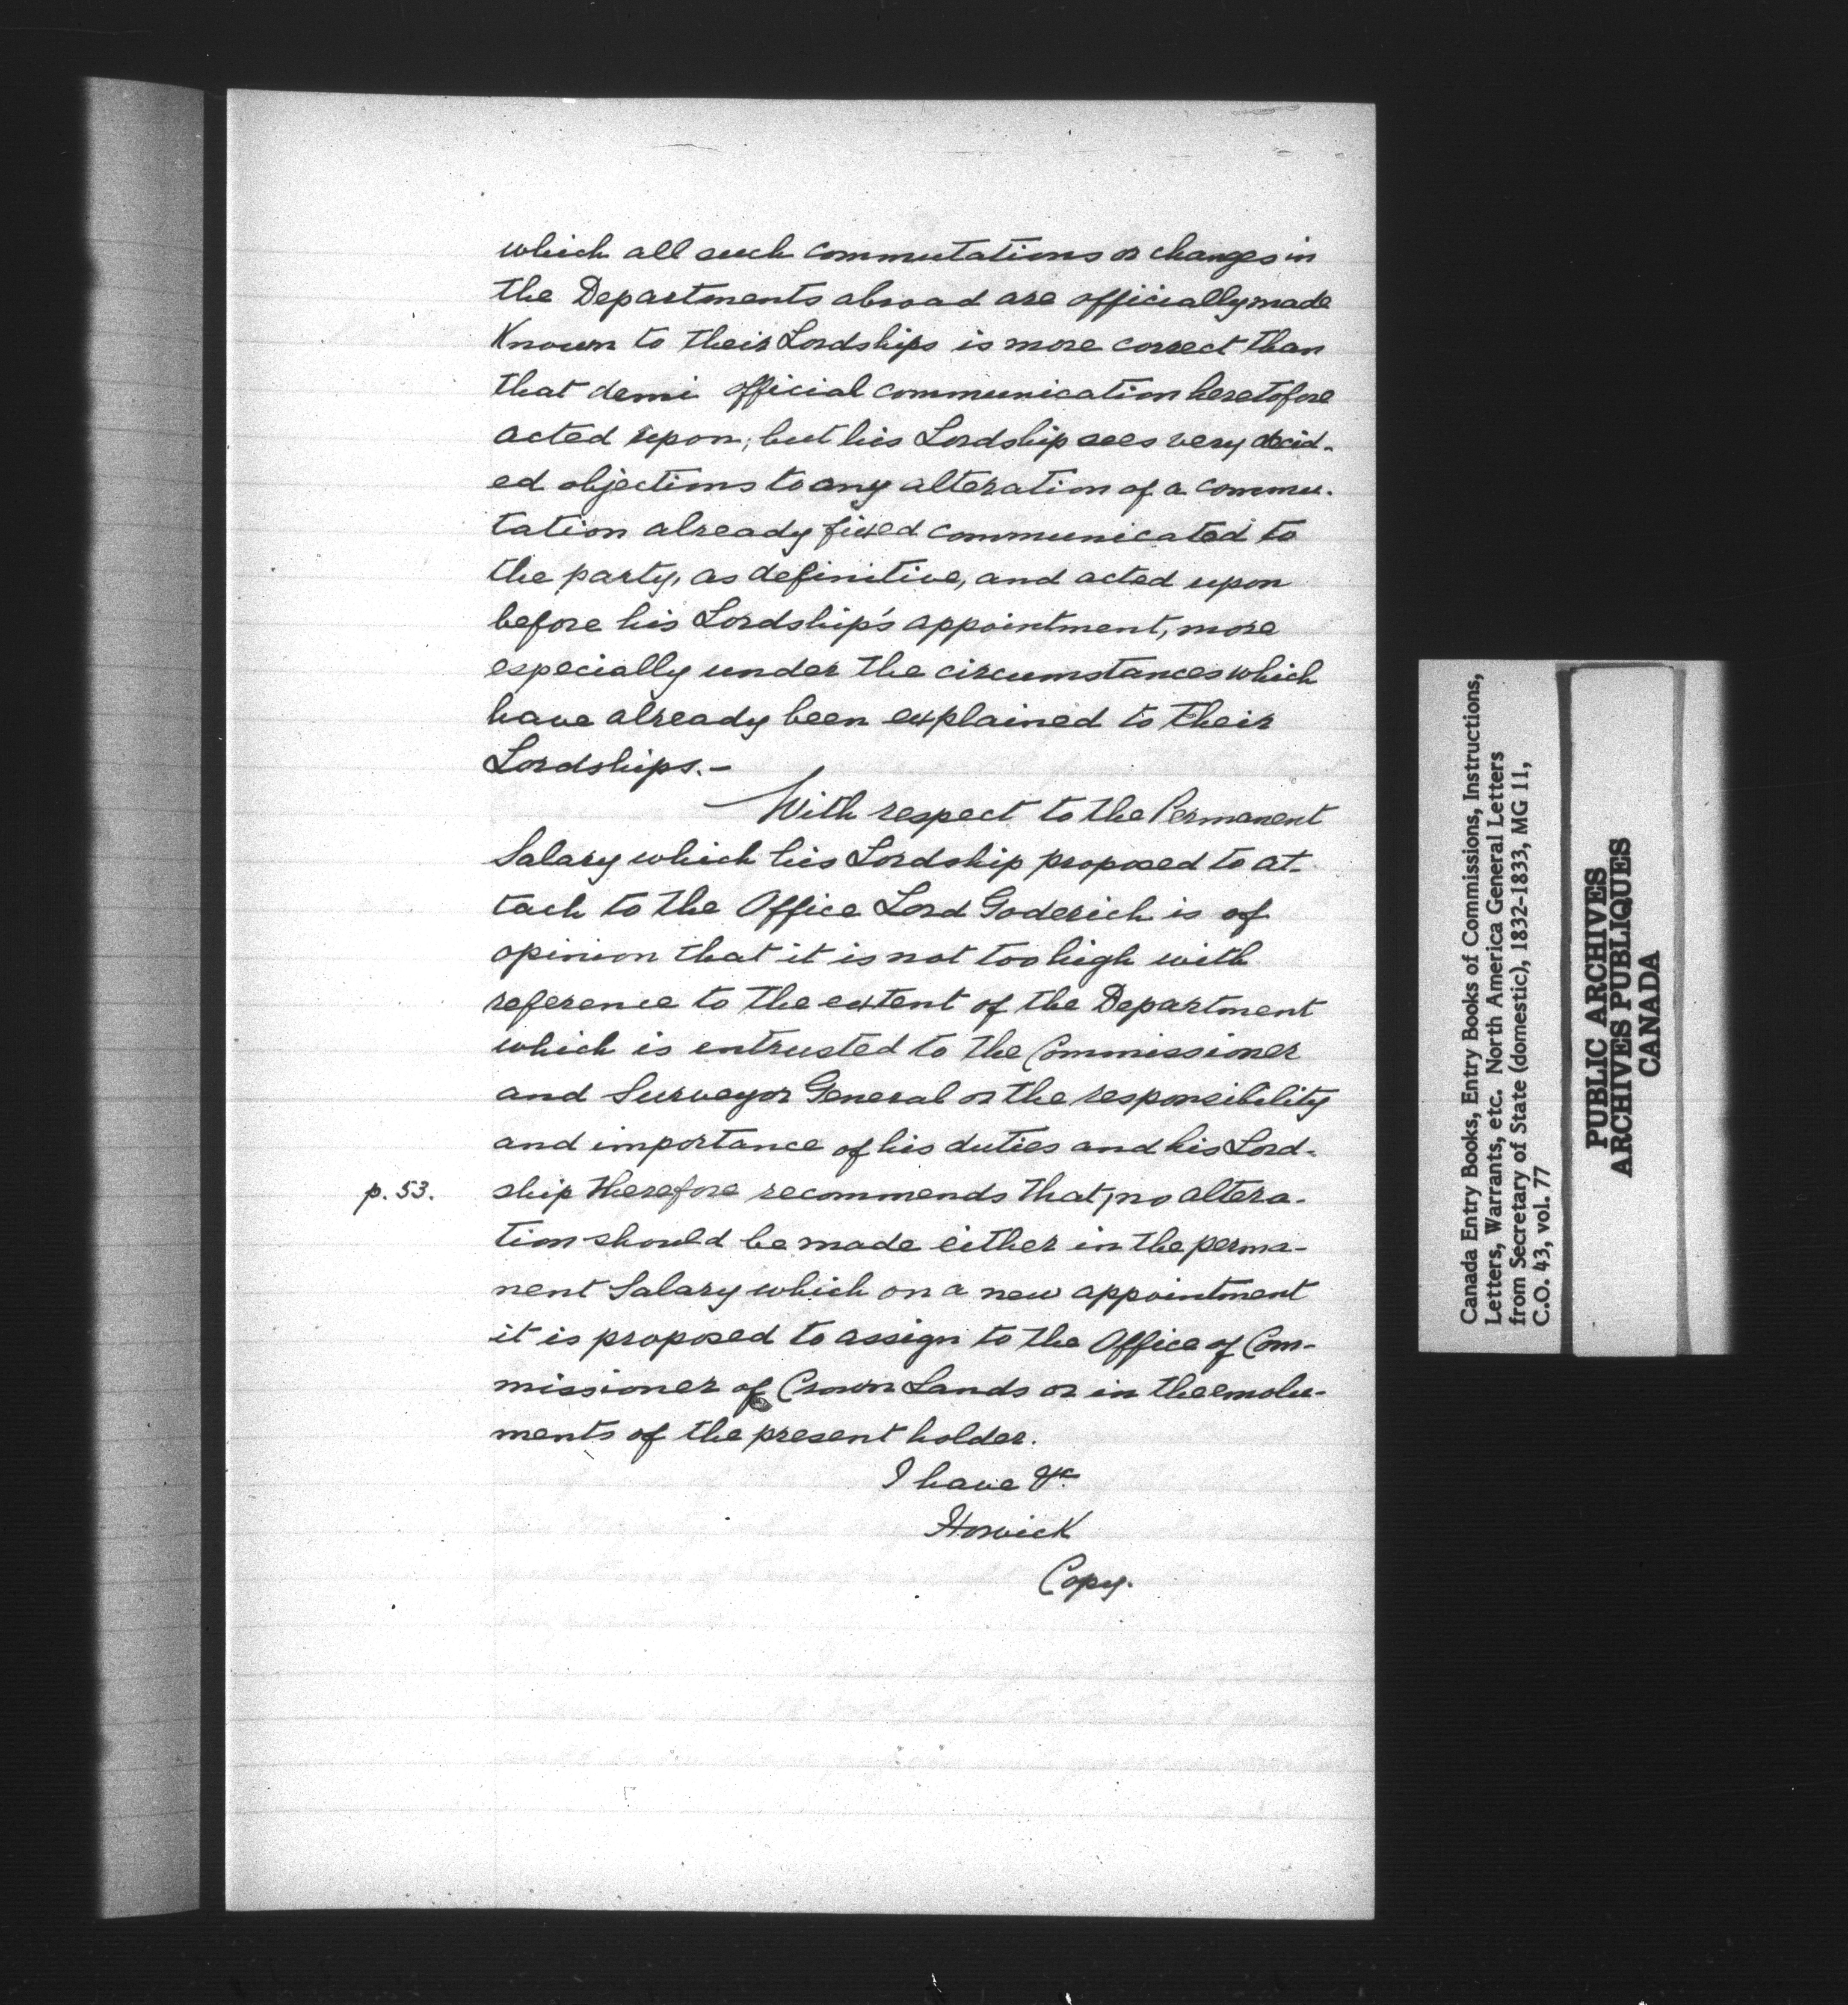 which all such commutations or changes in
the Departments abroad are officially made
Known to their Lordships is more correct than
that demi official communication heretofore
acted upon; but his Lordship sees very decid-
ed objections to any alteration of a commu-
tation already fixed communicated to
the party, as definitive, and acted upon
before his Lordship's appointment, more
especially under the circumstances which
have already been explained to their
Lordships.-
With respect to the Permanent
Salary which his Lordship proposed to at-
tach to the Office Lord Goderich is of
opinion that it is not too high with
reference to the extent of the Department
which is entrusted to the Commissioner
and Surveyor General or the responsibility
and importance of his duties and his Lord-
p. 53. ship therefore recommends that, no altera-
tion should be made either in the perma-
nent Salary which on a new appointment
it is proposed to assign to the Office of Com-
missioner of Crown Lands or in the emolu-
ments of the present holder.
I have &c
Howick
Copy.
Canada Entry Books, Entry Books of Commissions, Instructions,
Letters, Warrants, etc. North America General Letters
from Secretary of State (domestic), 1832-1833, MG 11,
C.O. 43, vol. 77
PUBLIC ARCHIVES
ARCHIVES PUBLIQUES
CANADA